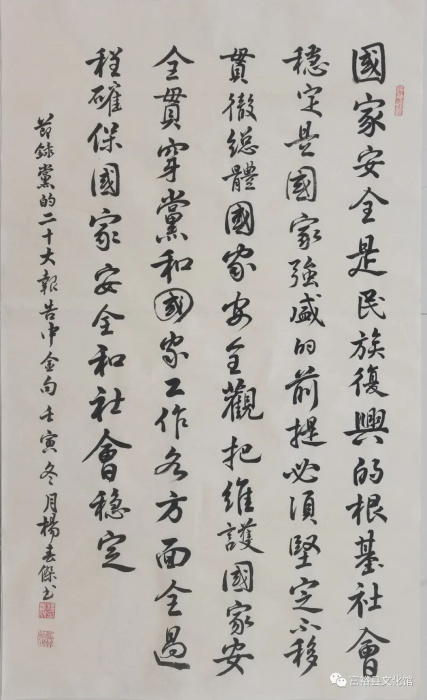 國家安全是民族復興的根基社會
穩定是國家強盛的前提必須堅定不移
貫徹總體國家安全觀把維護國家安
全貫穿黨和國家工作各方面全過
程確保國家安全和社會穩定
節錄黨的二十大報告中金句壬寅冬月楊春傑书
云裕县文化馆